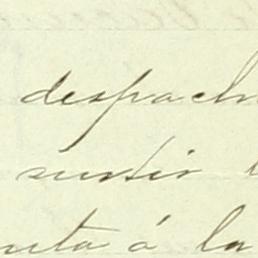 despach
surtir
nta á la